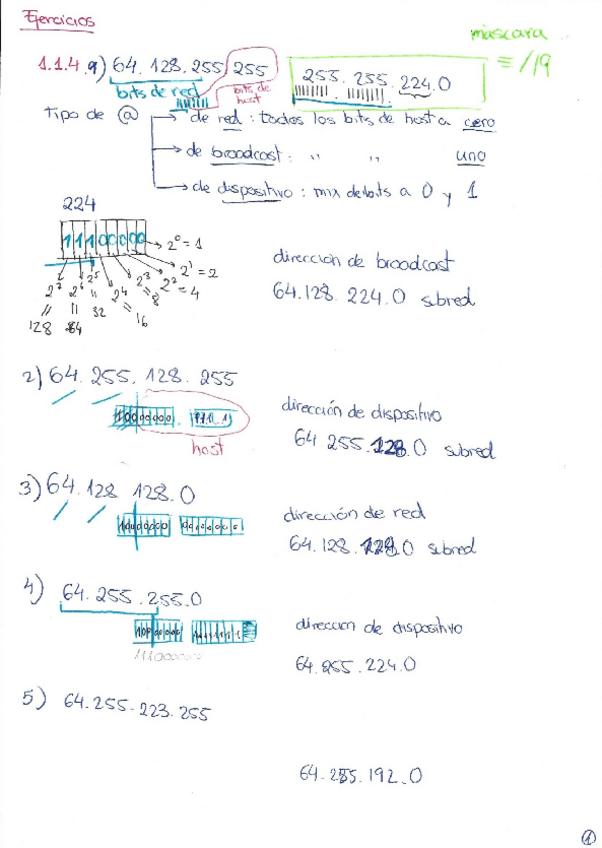 Ejercicios
máscara
≡ /19
1.1.4. a) 64. 128. 255. 255
255. 255. 224.0
bits de red
bits de host
Tipo de @
de red : todos los bits de host a cero
de broadcast : " " uno
de dispositivo : mix de bits a 0 y 1
224
1 1 1 0 0 0 0 0
2⁰ = 1
2¹ = 2
2² = 4
2³ = 8
2⁴ = 16
2⁵ = 32
2⁶ = 64
2⁷ = 128
dirección de broadcast
64.128. 224.0 subred
2) 64. 255. 128. 255
10000000
host
dirección de dispositivo
64 255.128.0 subred
3) 64.128 128.0
10000000 00000000
dirección de red
64.128.128.0 subred
4) 64.255.255.0
11100000
dirección de dispositivo
64.255.224.0
5) 64.255.223.255
64.255.192.0
1